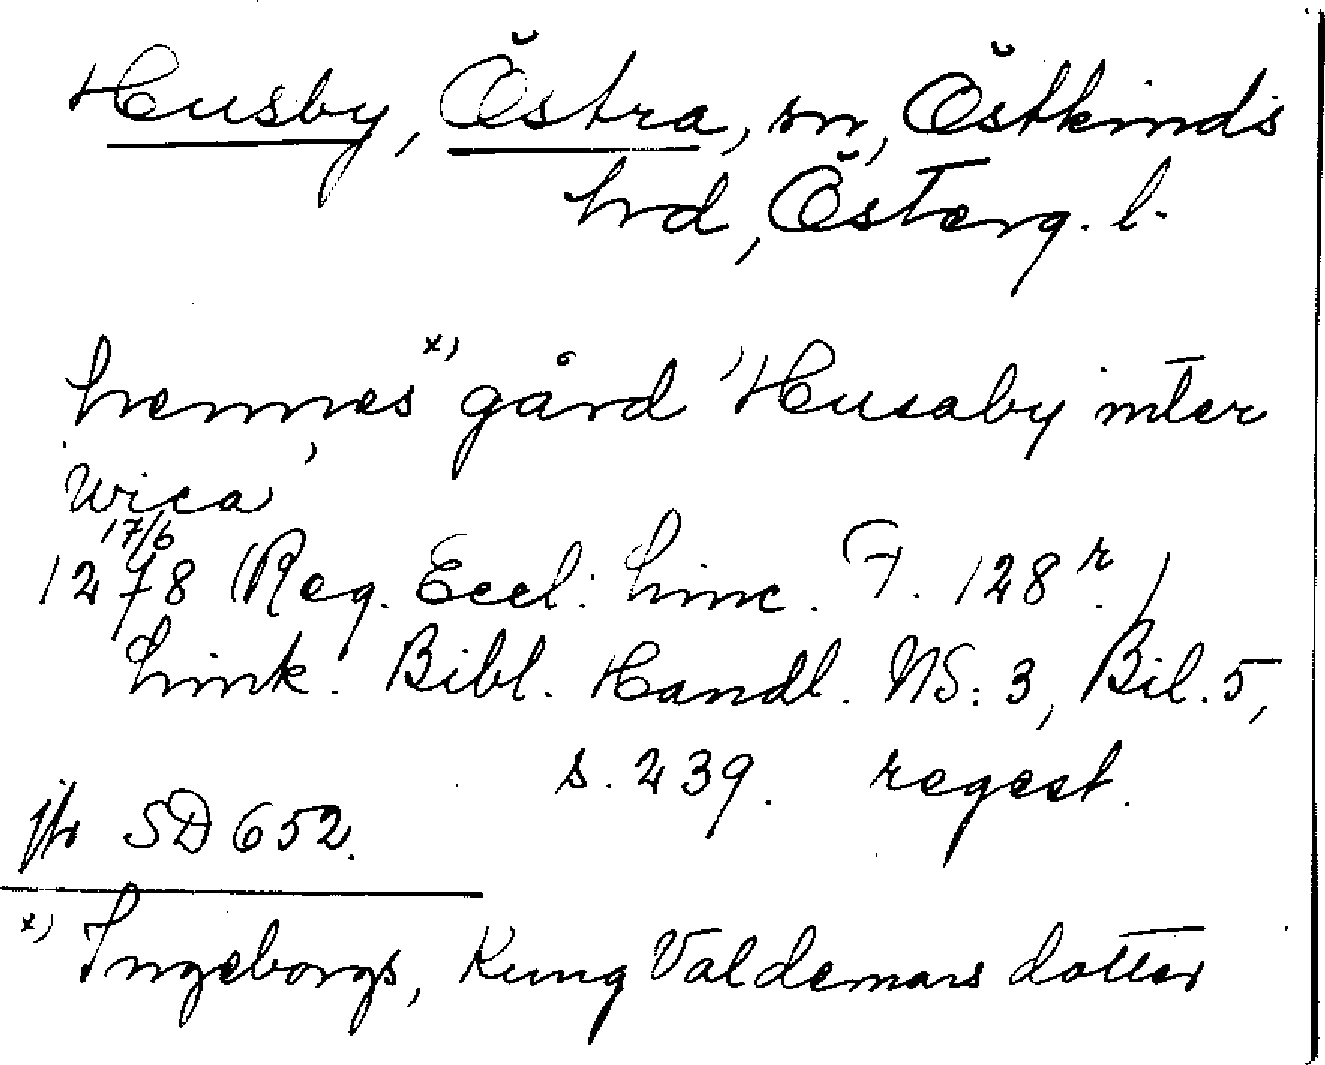 Husby, Östra, sn, Östkinds
hrd, Österg. l.
hennes x) gård 'Husaby inter
Wica'
1278 17/6 (Reg. Eccl. Linc. F. 128 r.)
Link. Bibl. Handl. NS: 3, Bil. 5,
s. 239. regest.
jfr SD 652.
x) Ingeborgs, Kung Valdemars dotter